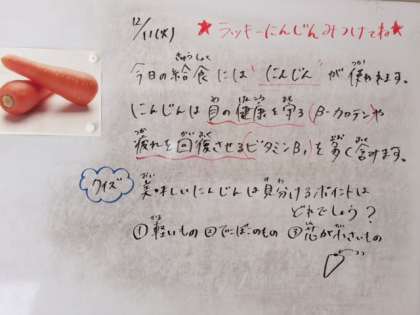 12/11(火) ★ラッキーにんじんみつけてね★
今日の給食には にんじん が 使われます。
にんじんは目の健康を守るβ-カロテンや
疲れを回復させるビタミンB₁を多く含みます。
クイズ 美味しいにんじんは見分けるポイントは
どれでしょう?
①軽いもの ②でこぼこのもの ③芯が小さいもの